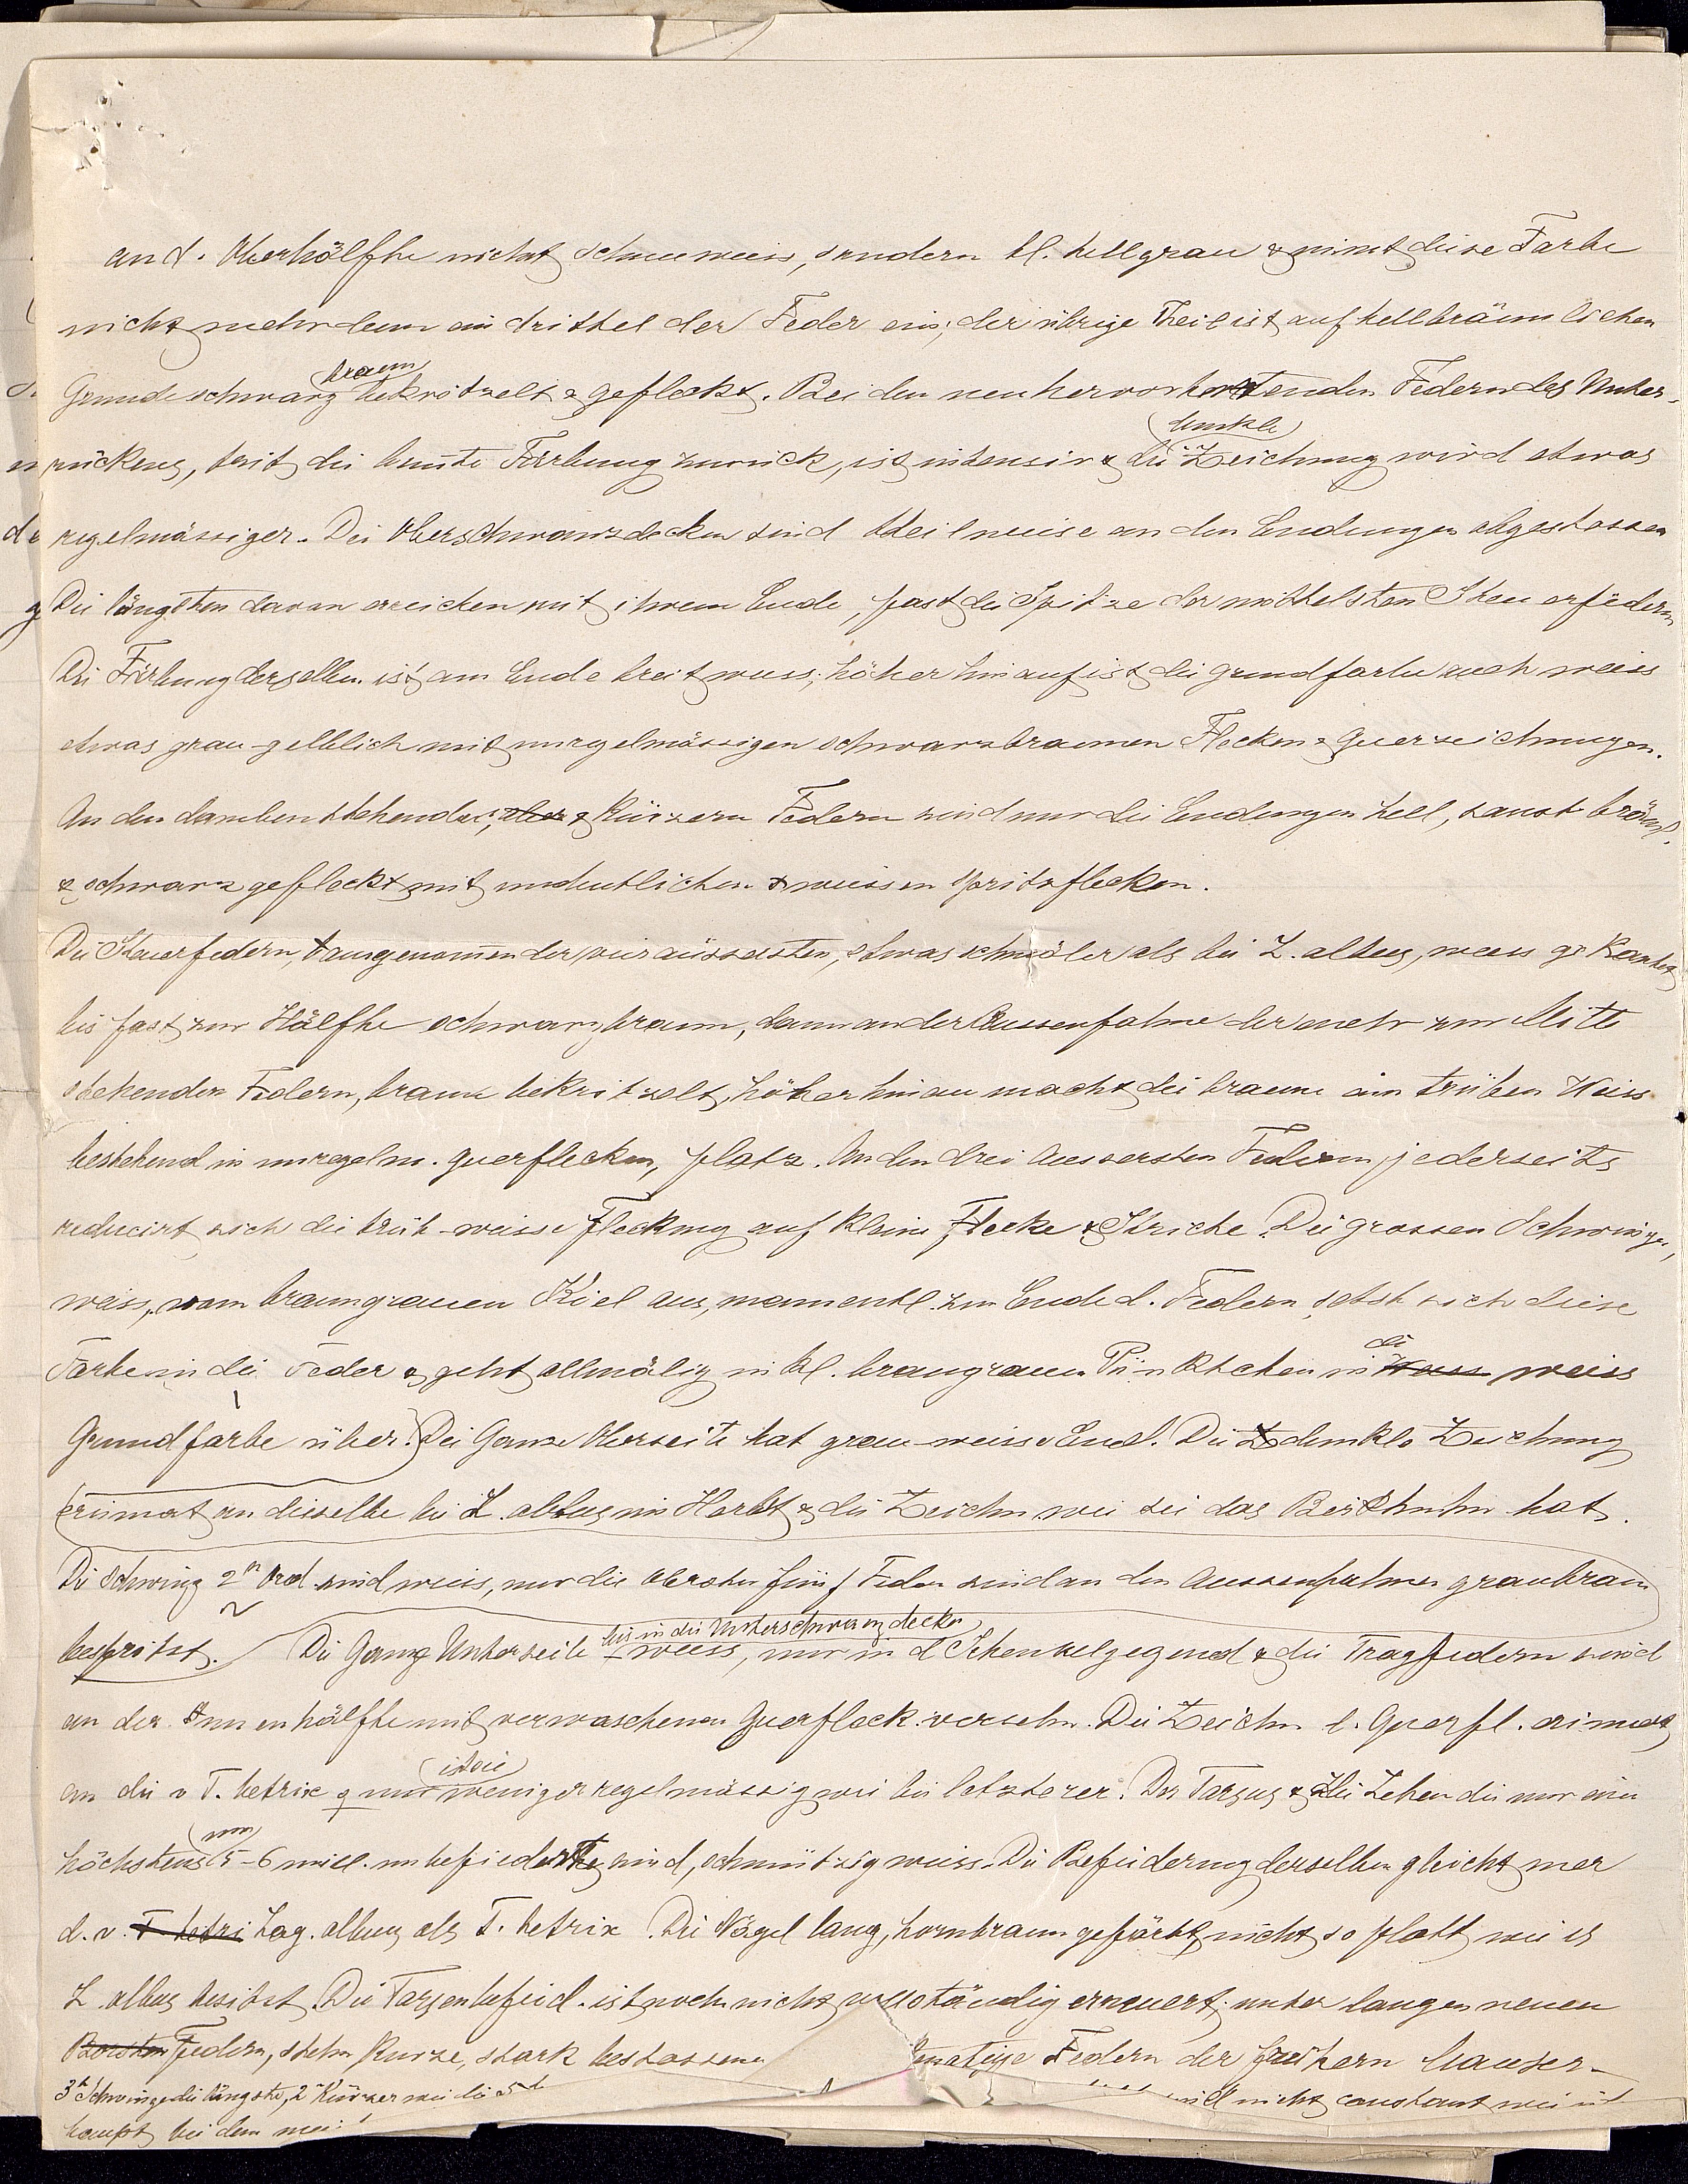 an d. Oberhälfte nicht schneeweis, sondern bl. hellgrau & nimt diese Farbe
nicht mehr denn ein drittel der Feder ein; der übrige Theil ist auf hellbräunlichen
Grunde schwarz braun bekritzelt & gefleckt. Bei den neu hervortretenden Federn des Unter-
rückens, trit die bunte Färbung zurück, ist intensiv & die dunkle Zeichnung wird etwas
regelmässiger. Die Oberschwanzdecken sind theilweise an den Endungen abgestossen
Die längsten davon erreichen mit ihrem Ende, fast die Spitze der mittelsten Steuerfedern
Die Färbung derselben ist am Ende breit weiss, höher hinauf ist die grundfarbe auch weiss
etwas grau-gelblich mit unregelmässigen schwarzbraunen Flecken & Querzeichnungen.
An den daneben stehenden, aber & Kürzern Federn sind nur die Endungen hell, sanst bräunl.
& schwarz gefleckt mit undeutlichen & weissen spritzflecken.
Die Steuerfedern, ausgenom̄en der vier äussersten, etwas schmäler als bei L. albus, weiss gekantet
bis fast zur Hälfte schwarzbraun, dann an der Aussenfahne der mehr zur Mitte
stehenden Federn, braun bekritzelt, höher hinau macht die braune ein trüben Weiss
bestehend in unregelm. querflecken, platz. An den drei äussersten Federn jederseits
reducirt sich die trüb-weisse fleckung auf kleine Flecke & Striche. Die grossen Schwingen,
weiss, vom braungrauen Kiel aus, mannentl. zum Ende d. Federn, setzt sich diese
Farbe in die Feder & geht allmälig in kl. braungrauen Pünktchen in die weiss
Grundfarbe über. Die Ganze Oberseite hat grau-weisse End. Die dunkle Zeichnung
erinnert an dieselbe bei L. albus im Herbst & die Zeichn. wie sie das Birkhuhn hat.
Die Schwing 2n Ord. sind weiss, nur die obersten fünf Federn sind an den Aussenfahnen graubraun
bespritzt. Die Ganze Unterseite bis in die Unterschwanzdecken weiss, nur in d Schenkelgegend & die Tragfedern sind
an der Innenhälfte mit verwaschenen Querfleck. versehn. Die Zeichn. d. Querfl. erinnert
an die v T. tetrix ♀ nur ist sie weniger regelmässig wie bei letzterer. Der Tarsus & die Zehen die nur ein
höchstens von 5-6 mill. unbefiedert sind, schmützig weiss. Die Befiederung derselben gleicht mer
d. v. T tetri Lag. albus als T. tetrix. Die Nägel lang, hornbraun gefärbt, nicht so platt wie es
L. albus besitzt. Die Tarsenbefied. ist noch nicht vollständig erneuert; unter langen neuen
Borsten Federn, stehn Kurze, stark bestossene Federn der frühern Mauser-
3t Schwinge die längste, 2t Kürzer wie die 5t nicht constant wie
haupt bei dem